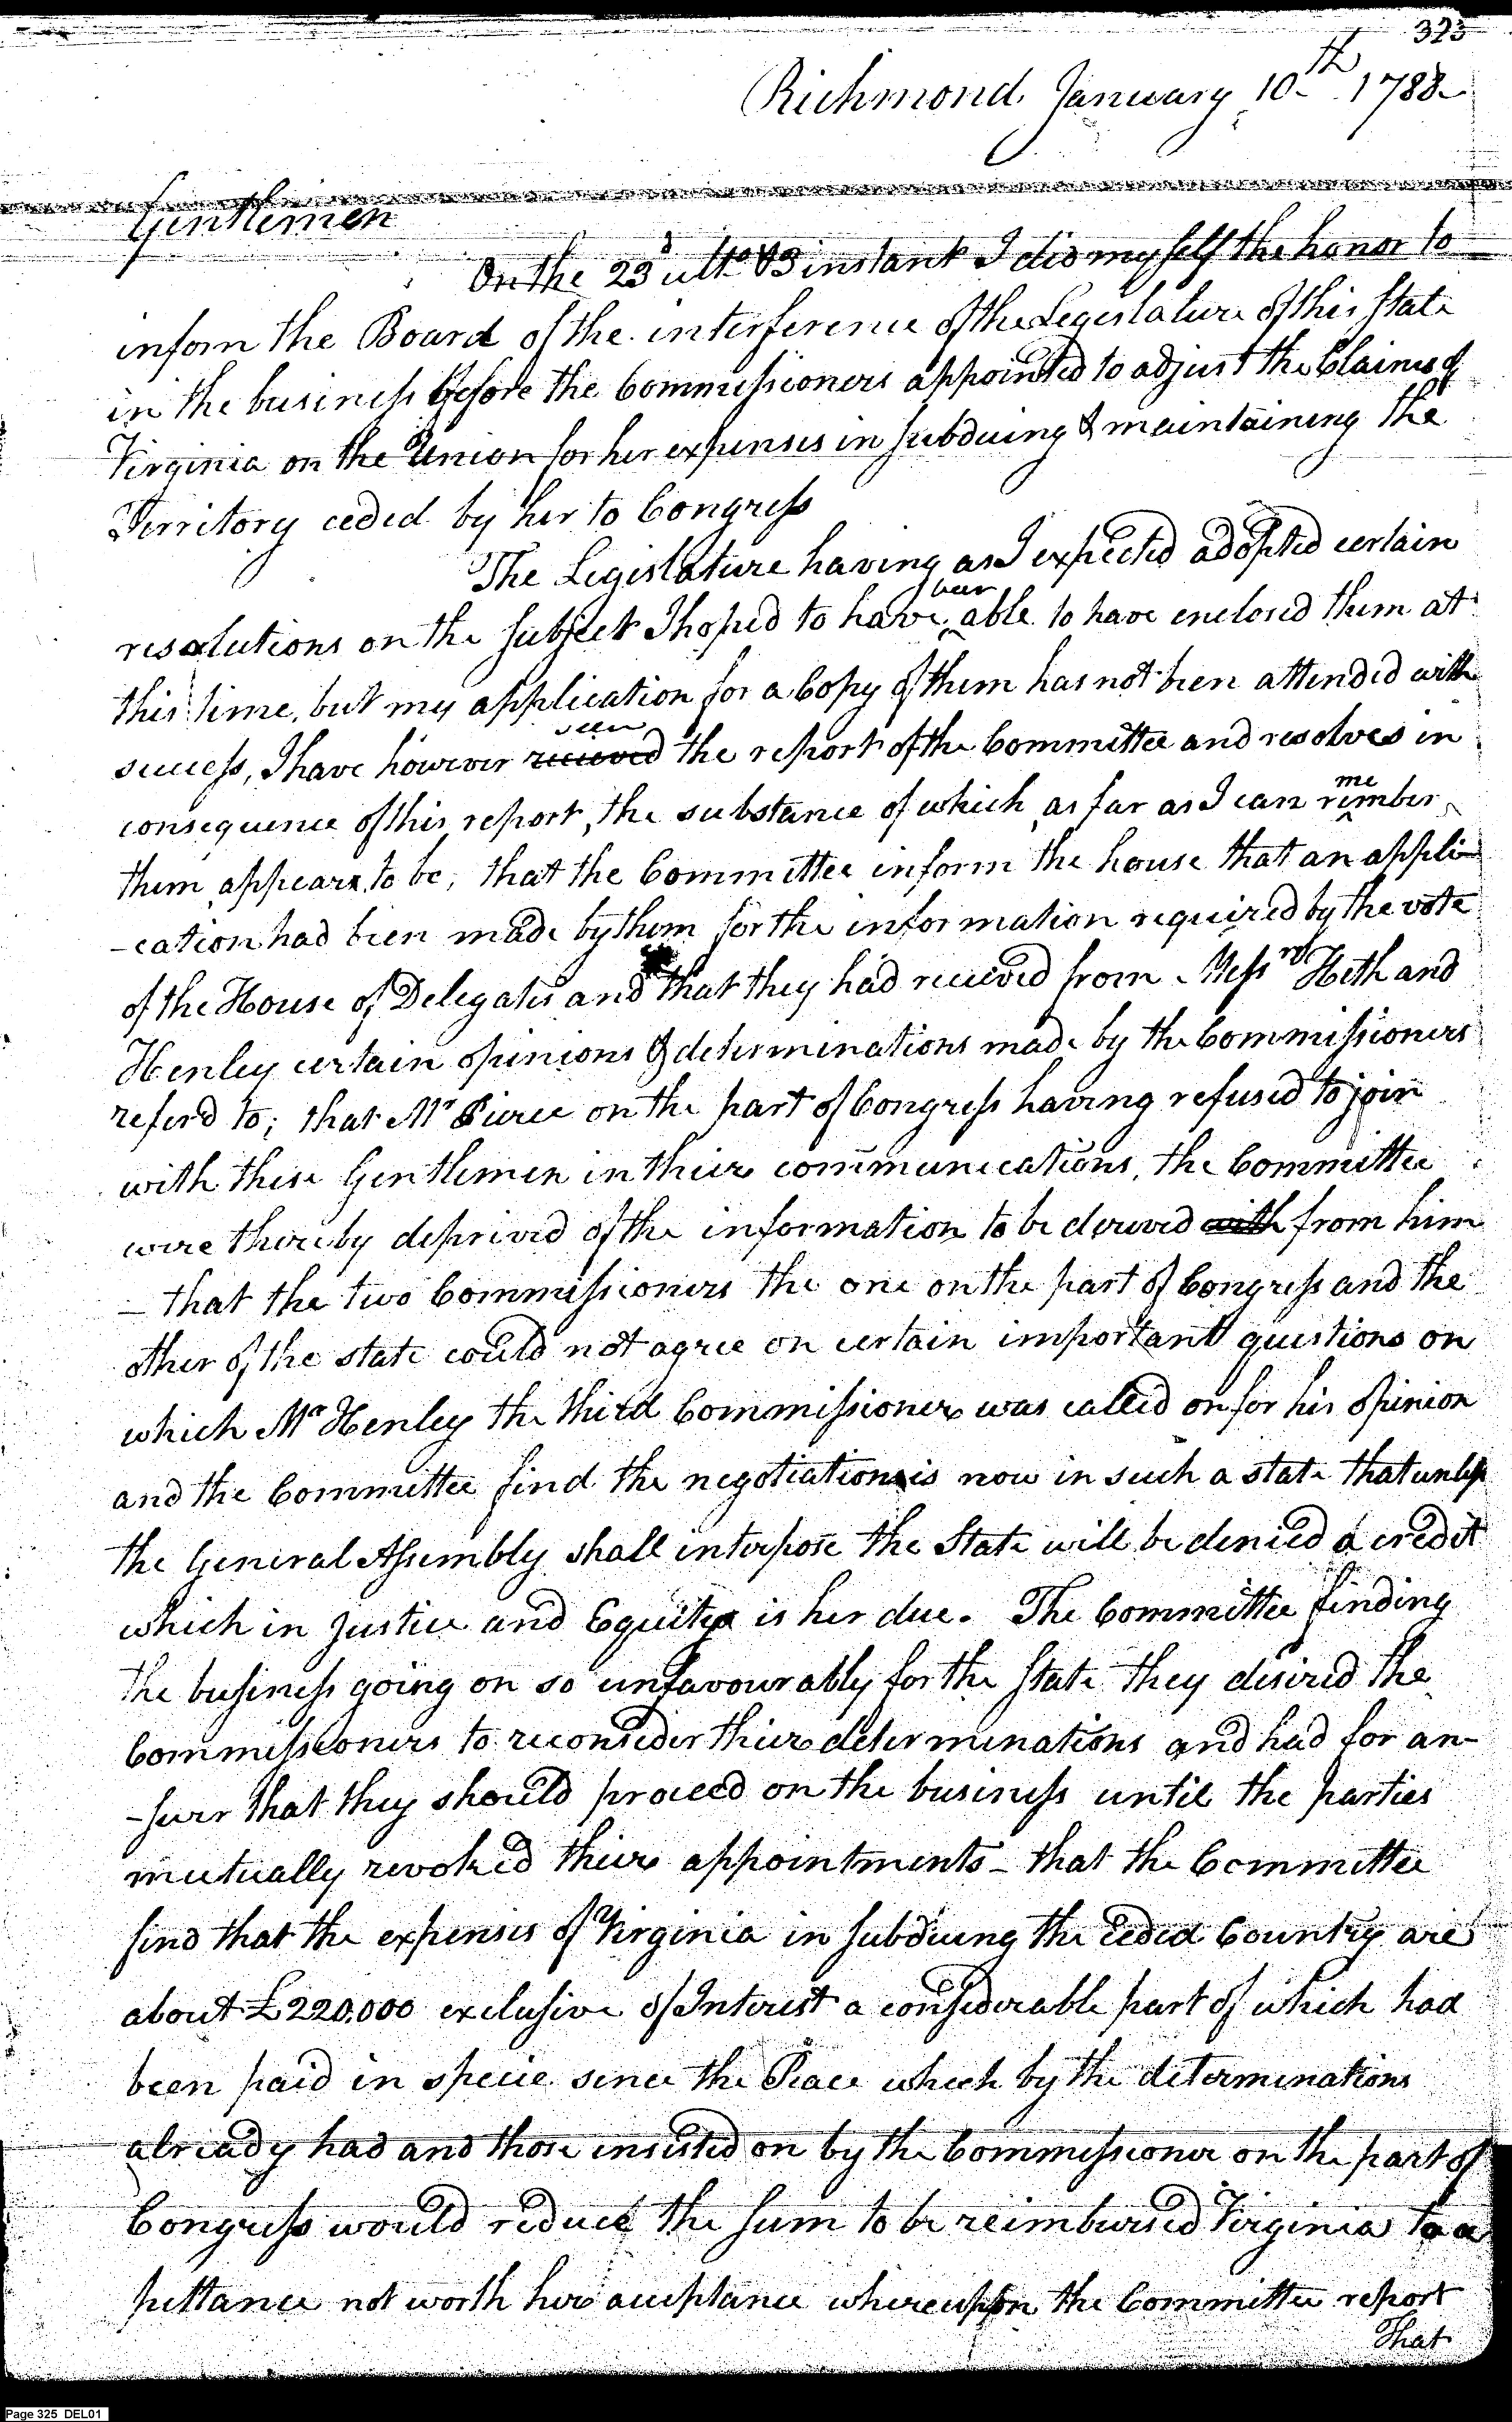 323
Richmond January 10th 1788
Gentlemen
On the 23d ulto & 3 instant I did myself the honor to
inform the Board of the interference of the Legislature of this State
in the business before the Commissioners appointed to adjust the Claims of
Virginia on the Union for her expenses in subduing & maintaining the
Territory ceded by her to Congress
The Legislature having as I expected adopted certain
resolutions on the subject I hoped to have been able to have enclosed them at
this time, but my application for a Copy of them has not been attended with
success, I have however recieved seen the report of the Committee and resolves in
consequence of this report, the substance of which as far as I can remember
them appears to be, that the Committee inform the house that an appli-
-cation had been made by them for the information required by the vote
of the House of Delegates and that they had recieved from Messrs Heth and
Henley certain opinions & determinations made by the Commissioners
referd to; that Mr Pierce on the part of Congress having refused to join
with these Gentlemen in their communications, the Committee
were thereby deprived of the information to be derived with from him
- that the two Commissioners the one on the part of Congress and the
other of the state could not agree on certain important questions on
which Mr Henley the third Commissioner was called on for his opinion
and the Committee find the negotiation is now in such a state that unless
the General Assembly shall interpose the State will be denied a credit
which in Justice and Equity is her due. The Committee finding
the business going on so unfavourably for the State they desired the
Commissioners to reconsider their determinations and had for an-
-swer that they should proceed on the business until the parties
mutually revoked their appointments - that the Committee
find that the expenses of Virginia in subduing the ceded Country are
about £220.000 exclusive of Interest a considerable part of which had
been paid in specie since the Peace which by the determinations
already had and those insisted on by the Commissioner on the part of
Congress would reduce the sum to be reimbursed Virginia to a
pittance not worth her acceptance whereupon the Committee report
That
Page 325 DEL01